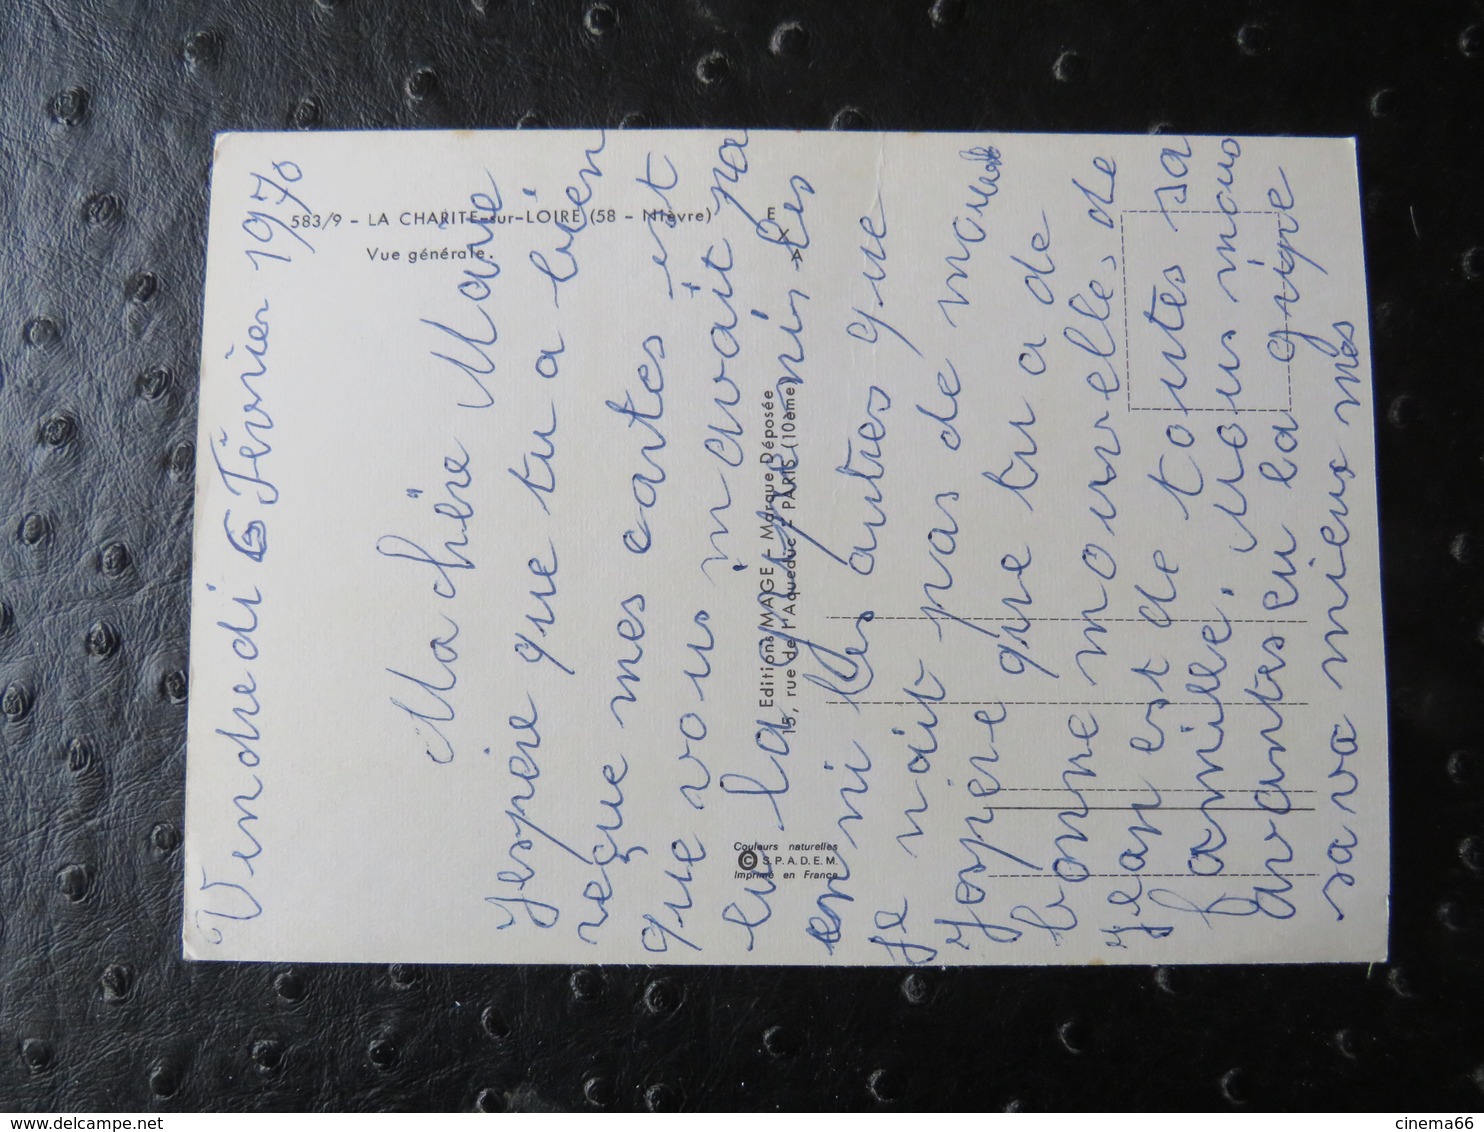 Vendredi 6 Février 1970
Ma chère Marie
Jespère que tu a bien
reçue mes cartes est
que vous m'avait pa
eu la grippe ni les
en ni les autres que
je nait pas de mal
Jospère que tu a de
bonne nouvelles de
Jean est de toutes sa
famille. Nous nous
avantes eu la grippe
sa va mieux mes
583/9 - LA CHARITE-sur-LOIRE (58 - Nièvre)
Vue générale.
Editions IMAGE - Marque Déposée
15, rue de l'Aqueduc - PARIS (10ème)
Couleurs naturelles
© S.P.A.D.E.M.
Imprimé en France
cinema66